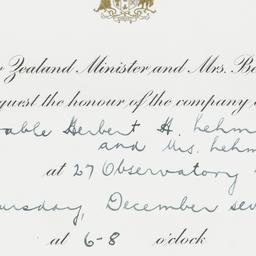 Zealand Minister and Mrs. Be
quest the honour of the company
rable Herbert H. Lehm
and Mrs. Lehm
at 27 Observatory
ursday, December sev
at 6-8 o'clock